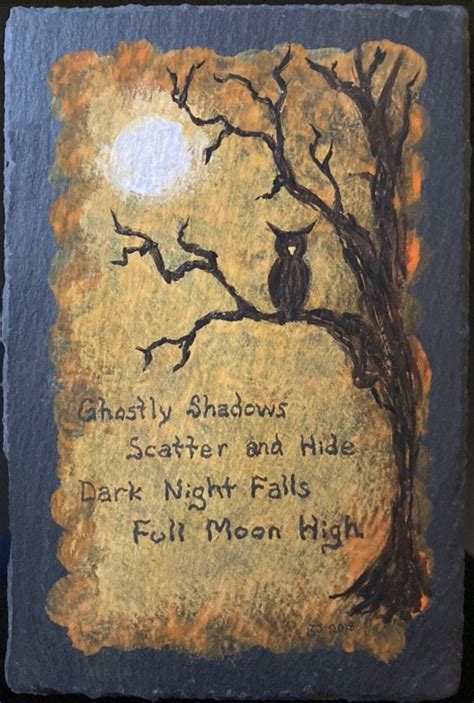 Ghostly Shadows
Scatter and Hide
Dark Night Falls
Full Moon High.
2018